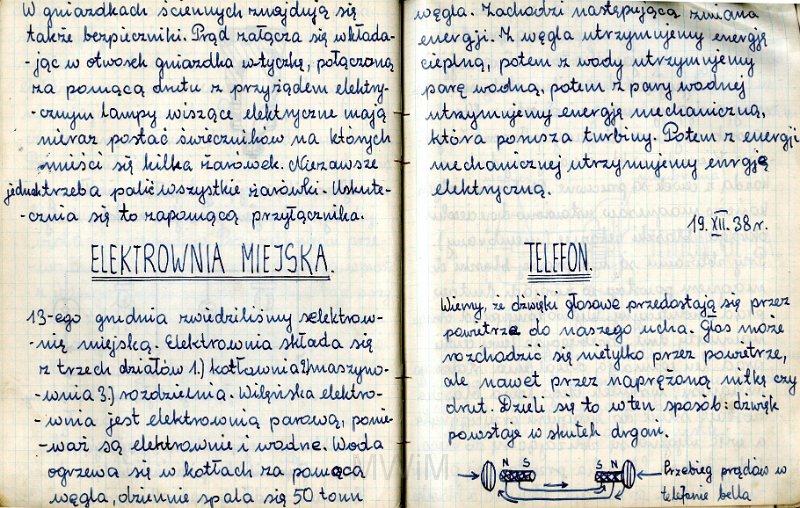 W gniazdkach ściennych znajdują się
także bezpieczniki. Prąd załącza się wkłada-
-jąc w otwosek gniazdka wtyczkę, połączoną
za pomącą drutu z przyżądem elektry-
-cznym lampy wiszące elektryczne mają
nieraz postać świeczników na których
mieści się kilka żarówek. Niezawsze
jednak trzeba palić wszystkie żarówki. Uskute-
-cznia się to zapomącą przyłącznika.
ELEKTROWNIA MIEJSKA.
13-ego grudnia zwiedziliśmy elektrow-
-nię miejską. Elektrownia składa się
z trzech działów 1.) kotłownia 2) maszyno-
-wnia 3.) rozdzielnia. Wileńska elektro-
-wnia jest elektrownią parową, ponie-
-waż są elektrownie i wodne. Woda
ogrzewa się w kotłach za pomącą
węgla, dziennie spala się 50 tonn
węgla. Zachodzi następującą zmiana
energji. Z węgla utrzymujemy energję
cieplną, potem z wody utrzymujemy
parę wodną, potem z pary wodnej
utrzymujemy energję mechaniczną,
która porusza turbiny. Potem z energji
mechanicznej utrzymujemy enrgję
elektryczną.
19. XII. 38 r.
TELEFON.
Wiemy, że dźwięki głosowe przedostają się przez
powietrze do naszego ucha. Głos może
rozchodzić się nietylko przez powietrze,
ale nawet przez naprężoną nitkę czy
drut. Dzieli się to w ten sposób: dźwięk
powstaje w skutek drgań.
N S S N
Przebieg prądów w
telefonie bella
MWiM